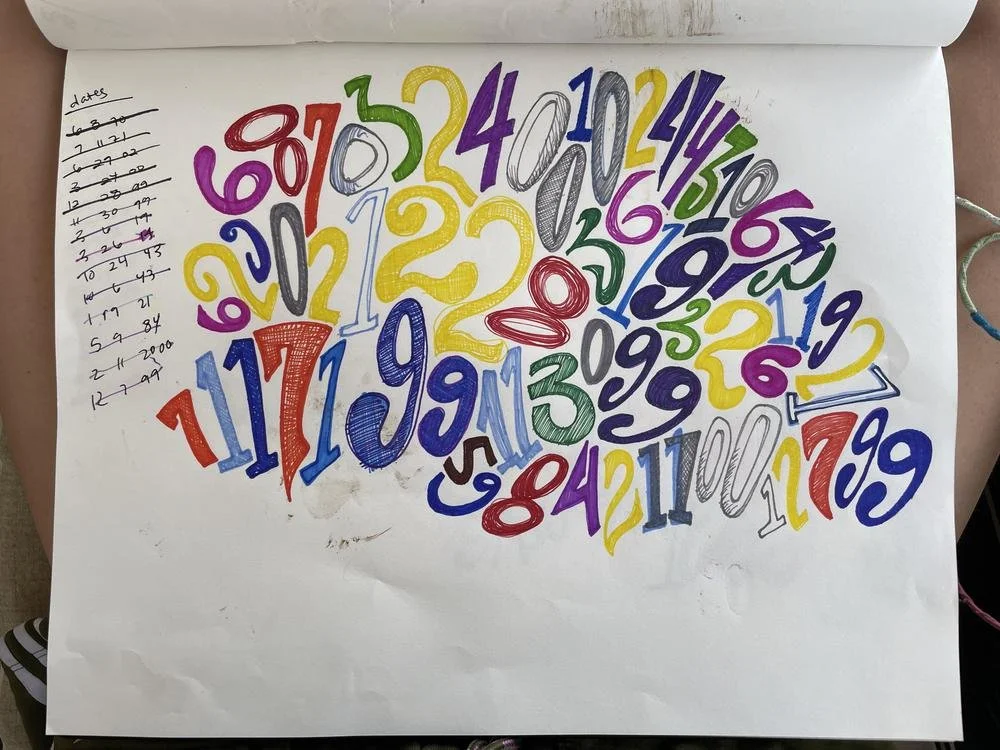 dates
6 8 70
7 11 21
6 27 02
3 27 02
12 28 99
11 30 99
3 6 19
3 26 19
10 24 43
10 6 43
1 19 21
5 9 84
2 11 2000
12 7 99
6 8 7 0 3 2 4 0 1 0 2 4 4 3 1 0 6 4 3
6 2 3 0 2 1 2 2 8 8 0 3 6 1 9 1
7 1 1 7 1 9 9 1 1 3 0 9 9 3 2 6 1 1 9 2 1
5 9 8 4 2 1 1 0 0 1 2 7 9 9